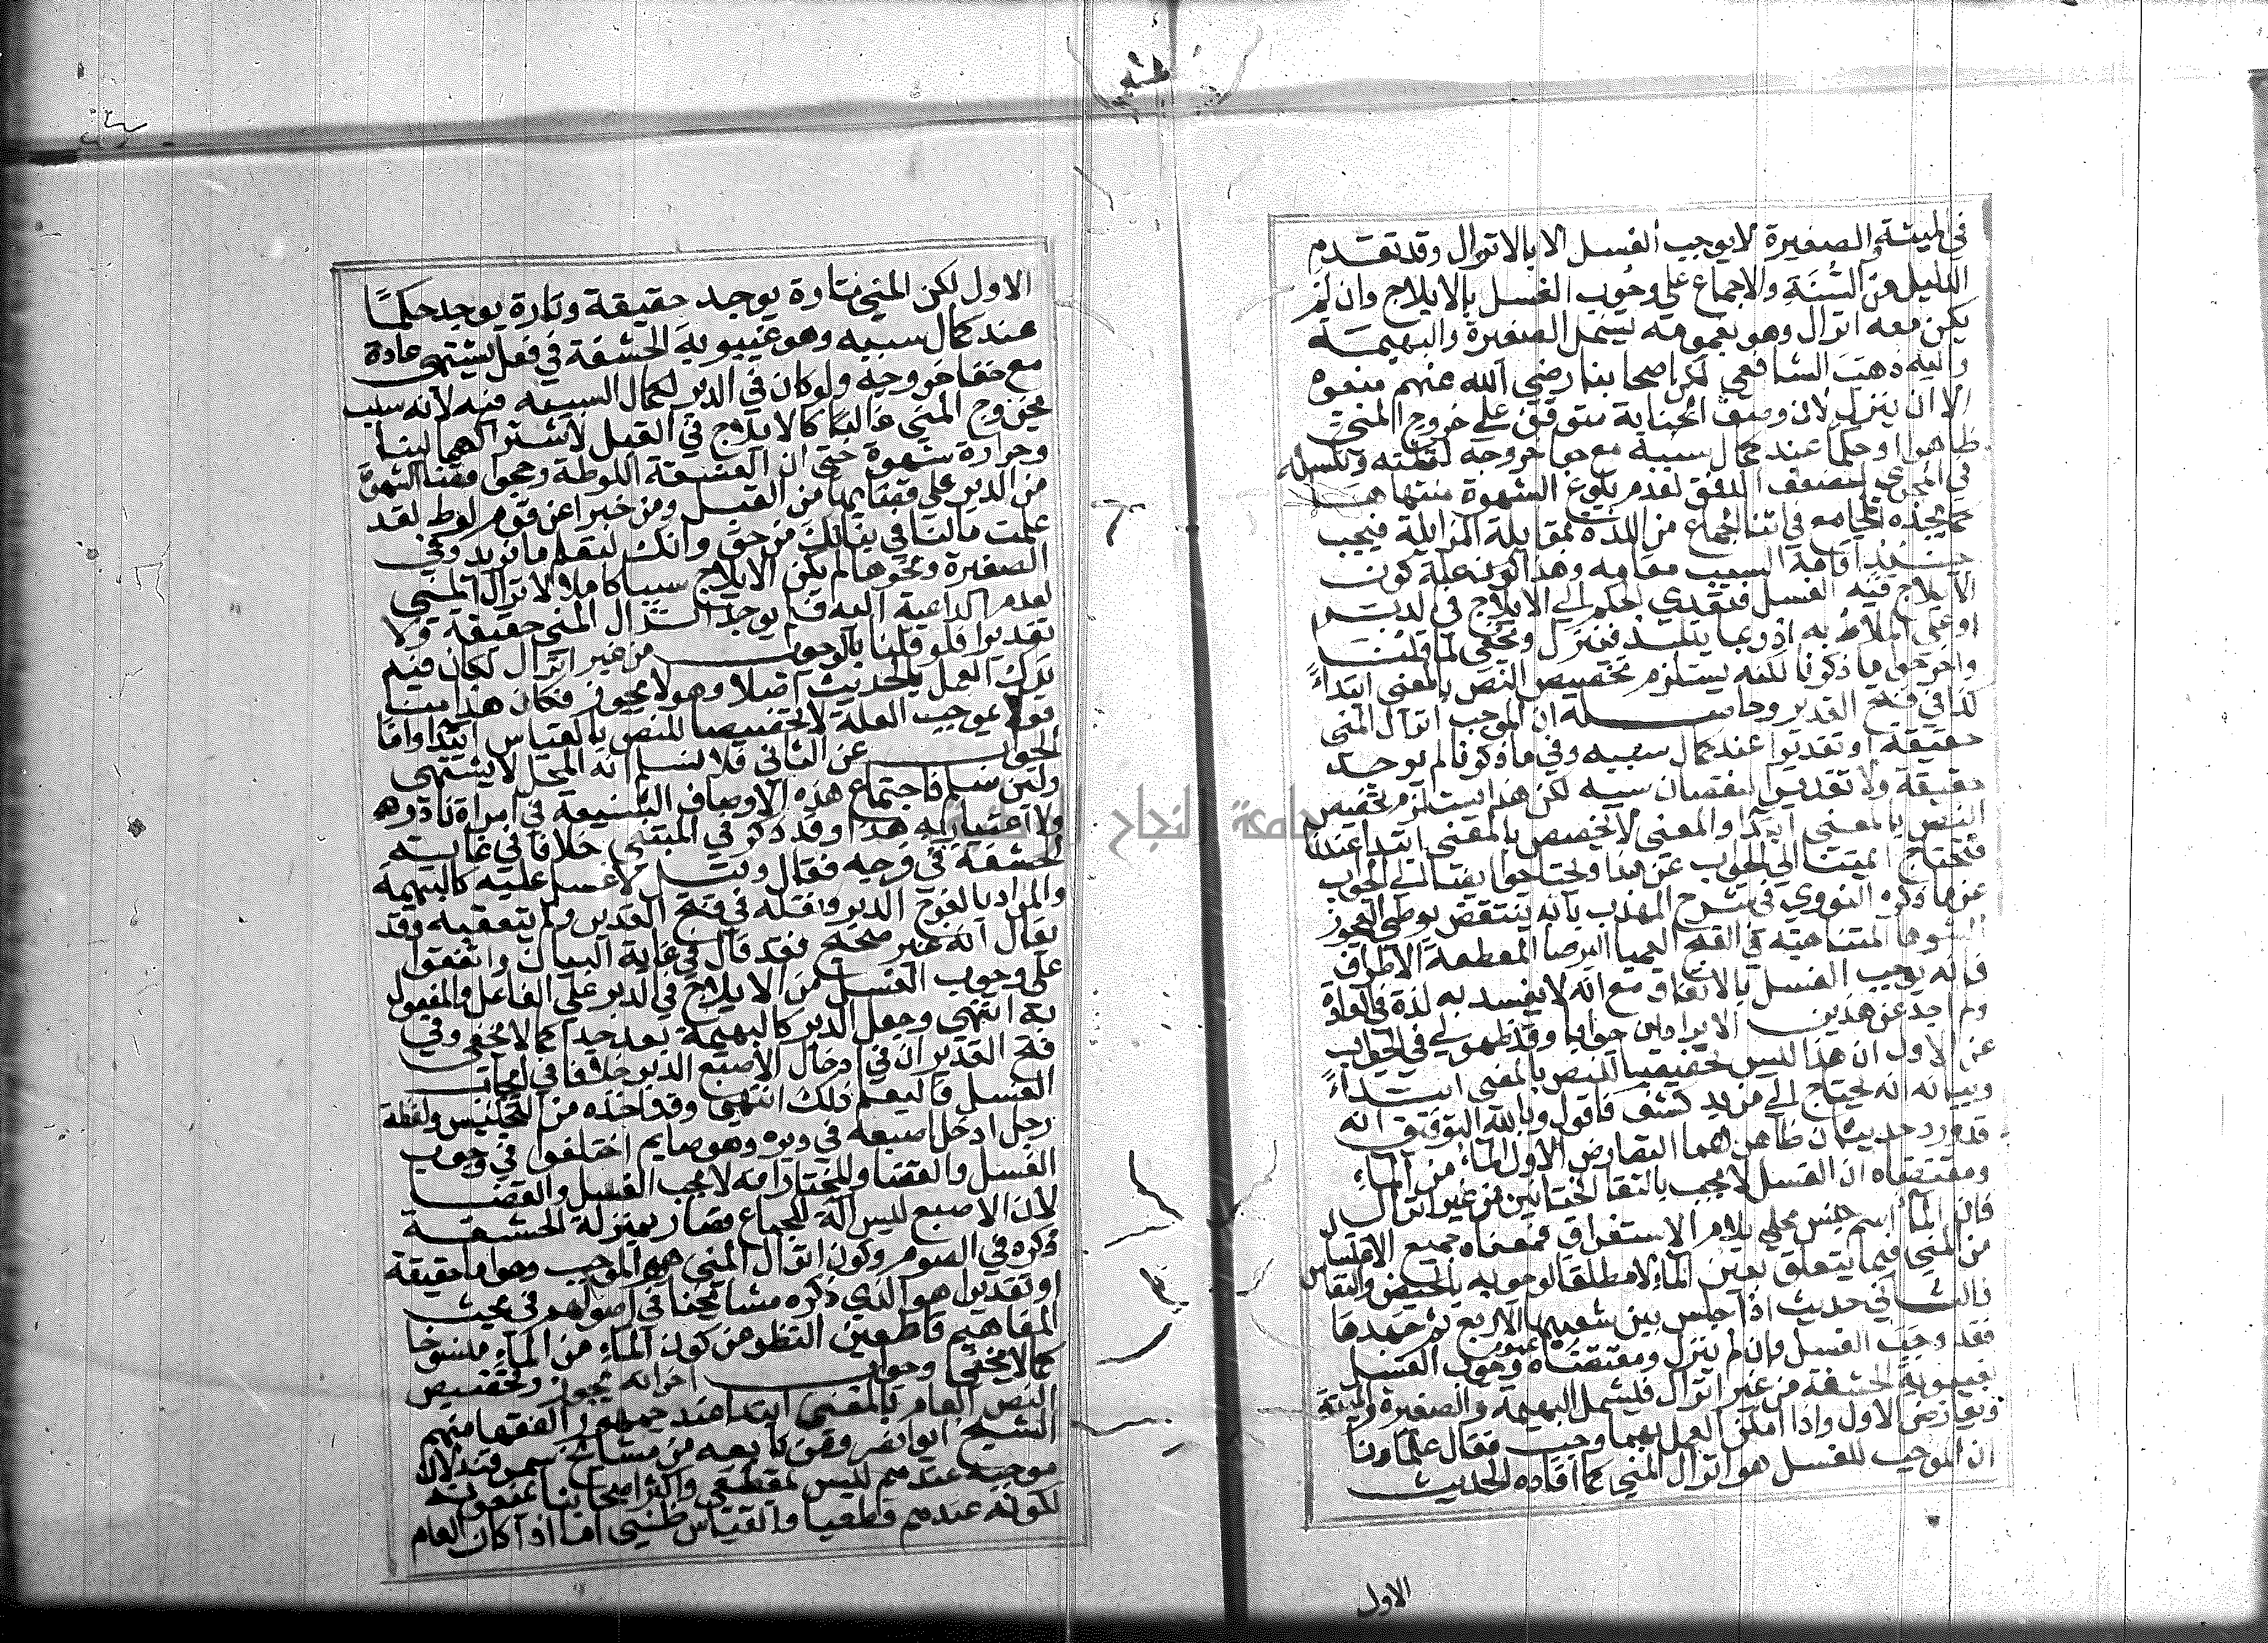 في الميتة والصغيرة لا يوجب الغسل الا بالانزال وقد تقدم
الدليل من السنة والاجماع على وجوب الغسل بالايلاج وان لم
يكن معه انزال وهو بعمومه يشمل الصغيرة والبهيمة
واليه ذهب الشافعي لكن اصحابنا رضي الله عنهم منعوه
الا ان ينزل لان وصف الجنابة متوقف على خروج المني
ظاهرا او حكما عند كمال سببه مع خروجه لقلته وتكسله
في المجرى لضعف الدفق لعدم بلوغ الشهوة منتهاها
كما يجده المجامع في اثنا الجماع من اللذة بمقابلة المزايلة فيجب
حينئذ اقامة السبب مقامه وهذا كونه علة كون
الايلاج فيه الغسل فتعدي الحكم الى الايلاج في الدبر
وعلى الملاط به اذ ربما يتلذذ فينزل ويخفى لما قلنا
واخرجوا ما ذكرنا لكنه يستلزم تخصيص النص بالمعنى ابتداءً
كذا في فتح القدير وحاصله ان الموجب انزال المني
حقيقة او تقديرا عند كمال سببه وفي ما ذكرنا لم يوجد
حقيقة ولا تقديرا لنقصان سببه لكن هذا يستلزم تخصيص
النص بالمعنى ابتدأ والمعنى لا يخصص بالمعنى ابتدا عندنا
فيحتاج ائمتنا الى الجواب عن هذا ويحتاجوا ايضا الى الجواب
عن ما ذكره النووي في شرح المهذب بانه ينتقض بوطئ العجوز
الشوها المتناهية في القبح العميا البرصا المقطعة الاطراف
فانه يوجب الغسل بالاتفاق مع انه لا يقصد به لذة في العادة
ولم اجد عن هذين الايرادين جوابا وقد ظهر لي في الجواب
عن الاول ان هذا ليس تخصيصا للنص بالمعنى ابتداءً
وبيانه انه يحتاج الى مزيد كشف فاقول وبالله التوفيق انه
قد ورد حديثان ظاهرهما التعارض الاول الماء من الماء
ومقتضاه ان الغسل لا يجب بالتقا الختانين من غير انزال
فان الماء اسم جنس محلى بلام الاستغراق فمعناه جميع الاغتسال
من المني فيما يتعلق بعين الماء لا مطلقا لوجوبه بالحيض والنفاس
والثاني حديث اذا جلس بين شعبها الاربع ثم جهدها
فقد وجب الغسل وان لم ينزل ومقتضاه عموم وجوب الغسل
بغيبوبة الحشفة من غير انزال فيشمل البهيمة والصغيرة والميتة
وتعارض الاول واذا امكن العمل بهما وجب فقال علماونا
ان الموجب للغسل هو انزال المني كما افاده الحديث
الاول
الاول لكن المني تارة يوجد حقيقة وتارة يوجد حكمًا
عند كمال سببه وهو غيبوبة الحشفة في فعل يشتهى عادة
مع خفا خروجه ولو كان في الدبر لكمال السببية فيه لانه سبب
لخروج المني غالبًا كالايلاج في القبل لاشتراكهما لينا
وحرارة شهوة حتى ان الفسقة اللوطة رجحوا قضا الشهوة
من الدبر على قضايها من القبل ومن خبرا عن قوم لوط لقد
علمت ما لنا في بناتك من حق وانك لتعلم ما نريد وفي
الصغيرة ونحوها لم يكن الايلاج سببا كاملا لانزال المني
لعدم الداعية اليه فلم يوجد انزال المني حقيقة ولا
تقديرا فلو قلنا بالوجوب من غير انزال لكان فيه
ترك العمل بالحديث اصلا وهو لا يجوز فكان هذا منا
قولا بموجب العلة لا تخصيصا للنص بالقياس ابتدا واما
الجواب عن الثاني فلا نسلم انه المحل لا يشتهى
ولئن سلم فاجتماع هذه الاوصاف الشنيعة في امراة نادر
ولا اعتبار به هذا وقد ذكر في المبتغى خلافا في غابت
الحشفة في فرجه فقال وقيل لا غسل عليه كالبهيمة
والمراد بالفرج الدبر ونقله في فتح القدير ولم يتعقبه وقد
يقال انه غير صحيح فقد قال في غاية البيان واتفقوا
على وجوب الغسل من الايلاج في الدبر على الفاعل والمفعول
به انتهى وجعل الدبر كالبهيمة بعيد جدا كما لا يخفى وفي
فتح القدير ان في ادخال الاصبع الدبر خلافا في ايجاب
الغسل فاليعلم ذلك انتهى وقد اخذه من التجنيس ولفظه
رجل ادخل اصبعه في دبره وهو صايم اختلفوا في وجوب
الغسل والقضا والمختار انه لا يجب الغسل والقضا
لان الاصبع ليس الة للجماع فصار بمنزلة الخشبة
ذكره في الصوم وكون انزال المني هو الموجب وهو اما حقيقة
او تقديرا هو الذي ذكره مشايخنا في اصولهم في بحث
المفاهيم قاطعين النظر من كون الماء من الماء منسوخا
كما لا يخفى وجواب اخر انه يجوز تخصيص
النص العام بالمعنى ابتدا عند جمهور الفقها منهم
الشيخ ابو منصور ومن تابعه من مشايخ سمرقند لان
موجبه عندهم ليس بقطعي واكثر اصحابنا يمنعونه
لكونه عندهم قطعيا والقياس ظني اما اذا كان العام